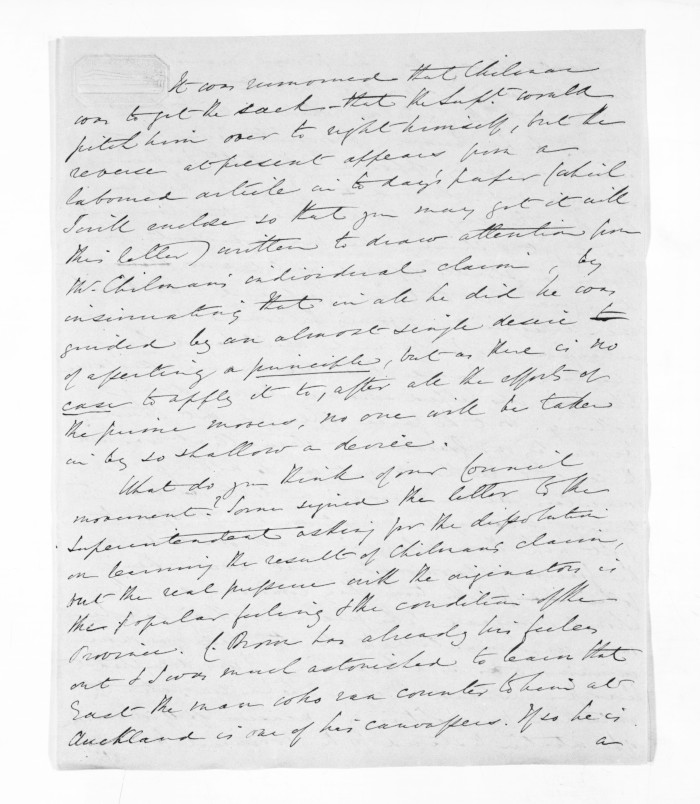 It was rumoured that Chilman
was to get the sack - that the Supt. would
pitch him over to right himself, but the
reverse at present appears from a
laboured article in to day's paper (which
I will enclose so that you may get it with
this letter) written to draw attention from
Mr. Chilman's individual claim, by
insinuating that in all he did he was
guided by an almost single desire to
of asserting a principle, but as there is no
case to apply it to, after all the efforts of
the prime movers, no one will be taken
in by so shallow a device.
What do you think of our Council
movement? Some signed the letter to the
Superintendent asking for the dissolution
on learning the result of Chilman's claim,
but the real pressure with the originators is
the popular feeling & the condition of the
Province. C. Brown has already his feelers
out & I was much astonished to learn that
East the man who ran counter to him at
Auckland is one of his canvassers. If so he is
a